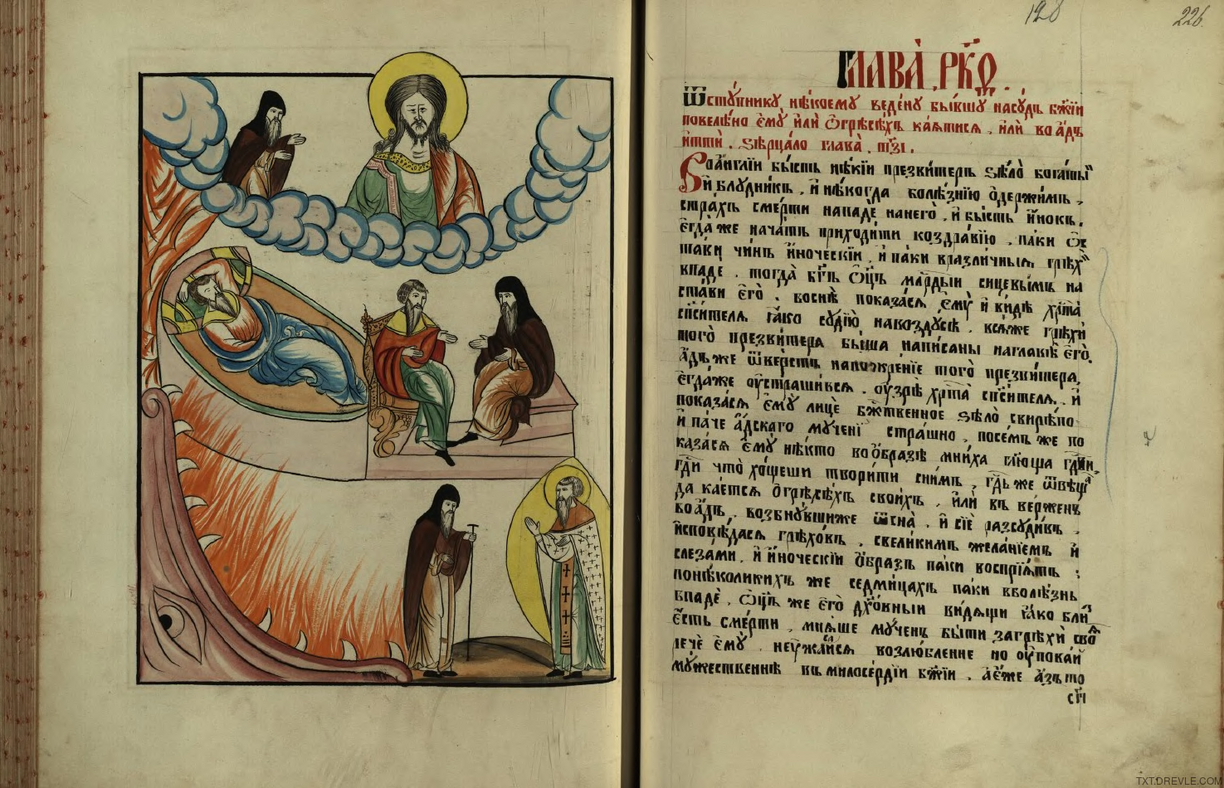 128
226
ГЛАВА̀ РК҃Ѳ
Ѿстꙋ́пникꙋ нѣ́коемꙋ веде́нꙋ бы́вшꙋ насꙋ́дъ бж҃їи
повелѣ́но є҆мꙋ̀ и҆лѝ ѻ҆грѣсѣ́хъ ка́ѧтисѧ . и҆лѝ во а҆́дъ
и҆тти̂ . ѕе́рца́ло глава̀ .
Во а҆нглїи бы́сть нѣ́кїи презви́теръ ѕѣлѡ̀ бога́тыи
И҆ блꙋ́дникъ . и҆ нѣ́когда болѣ́знїю ѻ҆держи́мъ .
стра́хъ сме́рти нападѐ нанего̀ . и҆ бы́сть и҆́нокъ .
є҆гда́ же нача́тъ приходи́ти коздра́вїю . па́ки ѿ
та́ки чи́нъ и҆́ноческїи . и҆ па́ки вразли́чныѧ грѣхѝ
впаде . тогда̀ бг҃ъ ѻ҆ц҃ъ млⷭ҇рдыи сицевы́мъ на
ста́ви є҆го̀ . воснѣ̀ показа́сѧ є҆мꙋ̀ и҆ ви́дѣ хрⷭ҇та̀
сп҃си́телѧ ꙗ҆́ко сꙋдїю̀ навозд́ꙋсѣ . всѧ́же грѣхѝ
того̀ презви́тера бы́ша напи́саны наглавѣ̀ є҆го̀ .
а҆́дъ же ѿве́рстъ напожре́нїе того̀ презви́тера
є҆гда́же ᲂу҆страши́всѧ . ᲂу҆зрѣ̀ хрⷭ҇та̀ сп҃си́телѧ . и҆
показа́сѧ є҆мꙋ̀ лицѐ бж҃твенное ѕѣлѡ̀ свирѣ́по
и҆ па́че а҆́дскаго мꙋче́нї стра́шно . посе́мъ же по
каза́сѧ є҆мꙋ̀ нѣ́кто во ѻ҆́бразѣ мни́ха гл҃юща гдⷭ҇и .
гдⷭ҇и что̀ хо́щеши твори́ти сни́мъ . гдⷭ҇ь же ѿвѣща̀
да ка́етсѧ ѻ҆ грѣсѣ́хъ свои́хъ . и҆лѝ въ ве́рженъ
во а҆́дъ . возбнꙋ́вшиже ѿсна̀ . и҆ сїѐ разсꙋди́въ .
и҆сповѣ́дасѧ грѣхо́въ . свели́кимъ жела́нїемъ и҆
слеза́ми . и҆ и҆́ноческїи ѻ҆́бразъ па́ки воспрїѧ́тъ :
понѣ́коликихъ же седми́цахъ па́ки вболѣ́знь
впадѐ . ѻ҆ц҃ъ же є҆го̀ дꙋхо́вныи ви́дѧщи ꙗ҆́ко бли
є҆́сть сме́рти . мнѧ́ше мꙋ́ченъ бы́ти загрѣхѝ своѧ̂
рече є҆мꙋ̀ . неᲂу҆жаса́йсѧ возлю́бленне но ᲂу҆пова́й
мꙋ́жественнѣ въ милосе́рдїи бж҃їи . а҆ є҆́же а҆́зъ то
сїѝ
TXT.DREVLE.COM